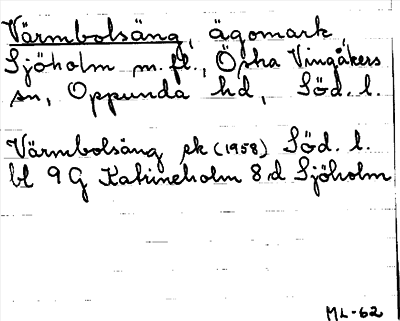 Värmbolsäng, ägomark,
Sjöholm m.fl., Östra Vingåkers
sn, Oppunda hd, Söd. l.
Värmbolsäng ek (1958) Söd. l.
bl 9 G Katrineholm 8 d Sjöholm
ML-62